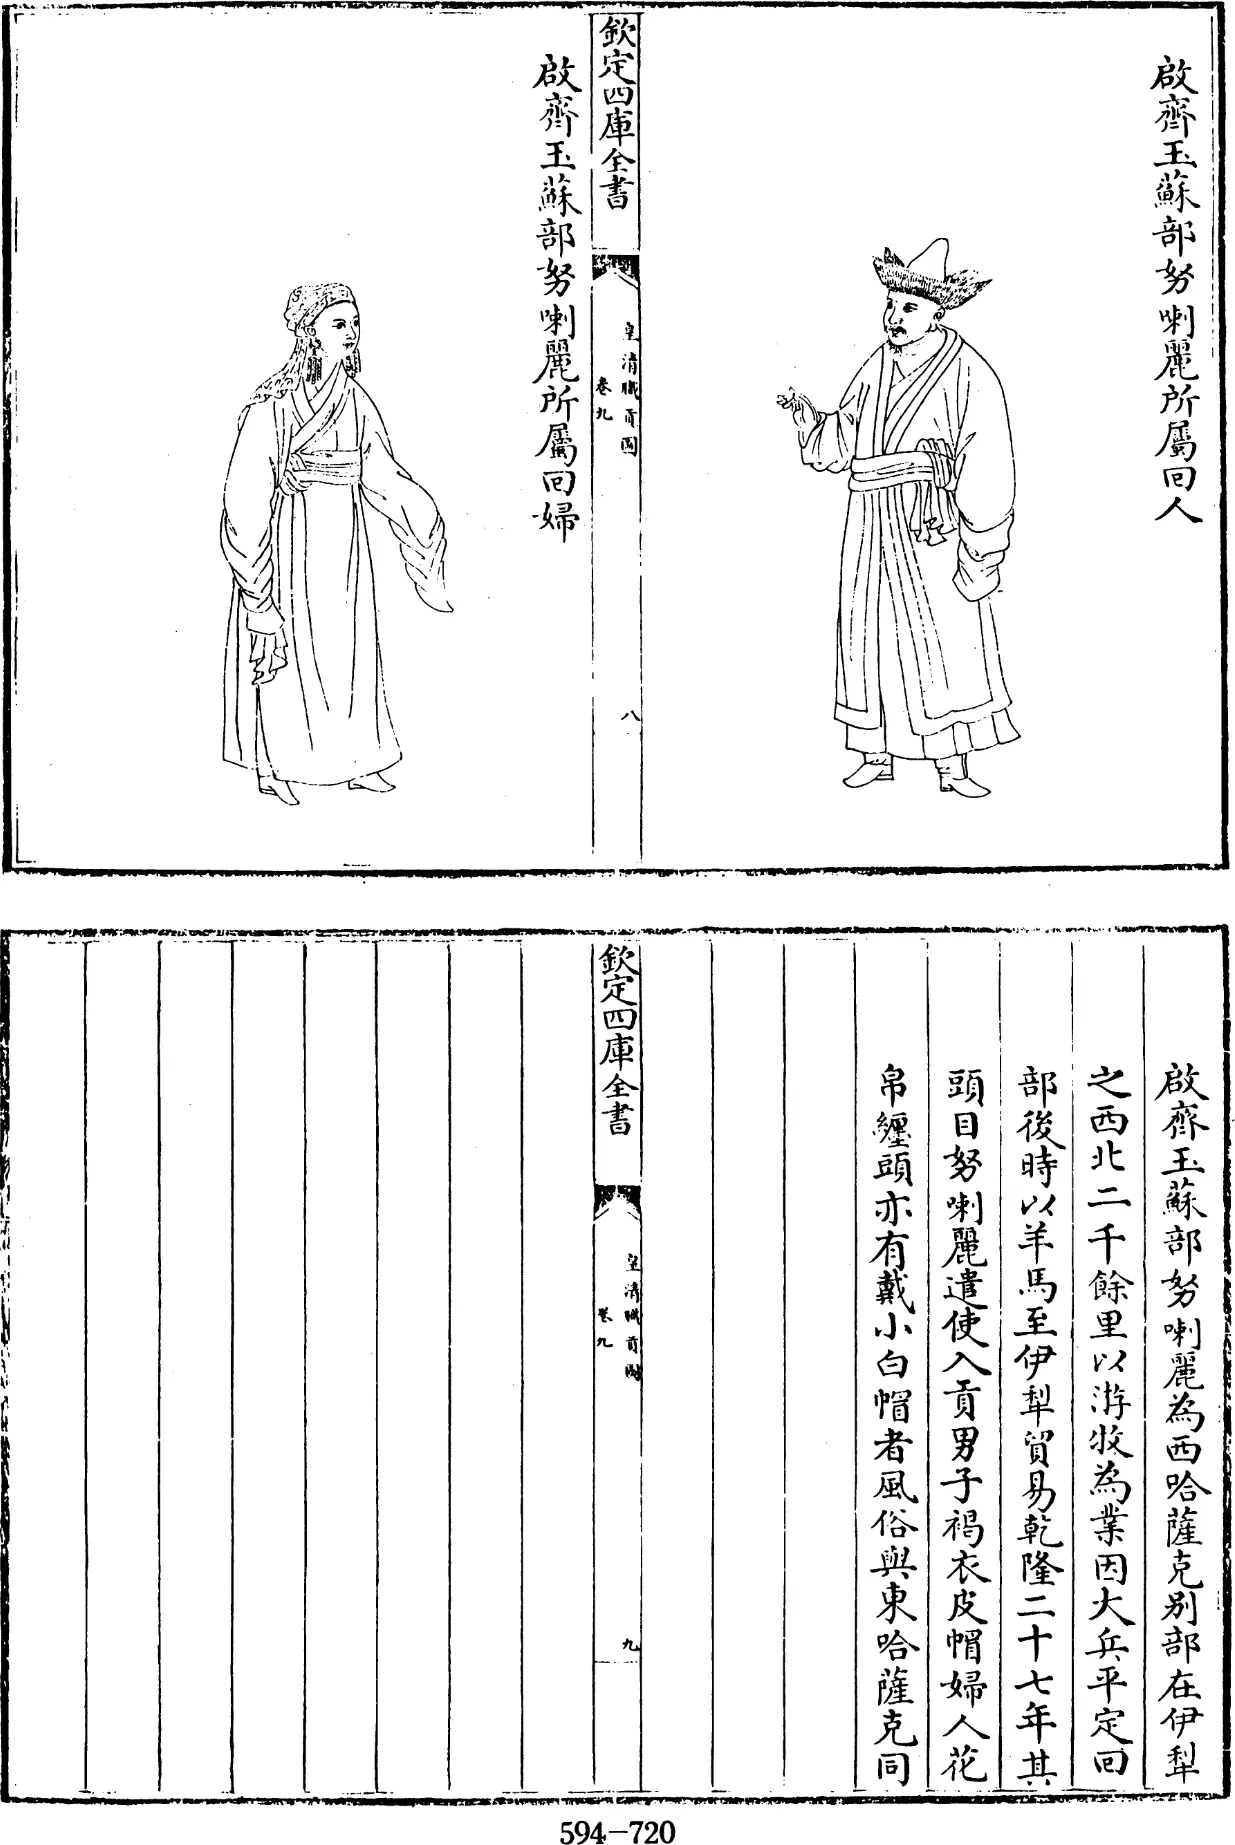 啟齊玉蘇部努喇麗所屬回人
欽定四庫全書
皇清職貢圖
卷九
八
啟齊玉蘇部努喇麗所屬回婦
啟齊玉蘇部努喇麗為西哈薩克别部在伊犁
之西北二千餘里以游牧為業因大兵平定回
部後時以羊馬至伊犁貿易乾隆二十七年其
頭目努喇麗遣使入貢男子褐衣皮帽婦人花
帛纏頭亦有戴小白帽者風俗與東哈薩克同
欽定四庫全書
皇清職貢圖
卷九
九
594-720